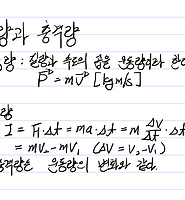 량과 충격량
량 : 질량과 속도의 곱은 운동량이라 한다
P = mv [kg m/s]
량
I = F·Δt = ma·Δt = m Δv/Δt ·Δt
= mv₂ - mv₁ (Δv = v₂-v₁)
충격량은 운동량의 변화와 같다.